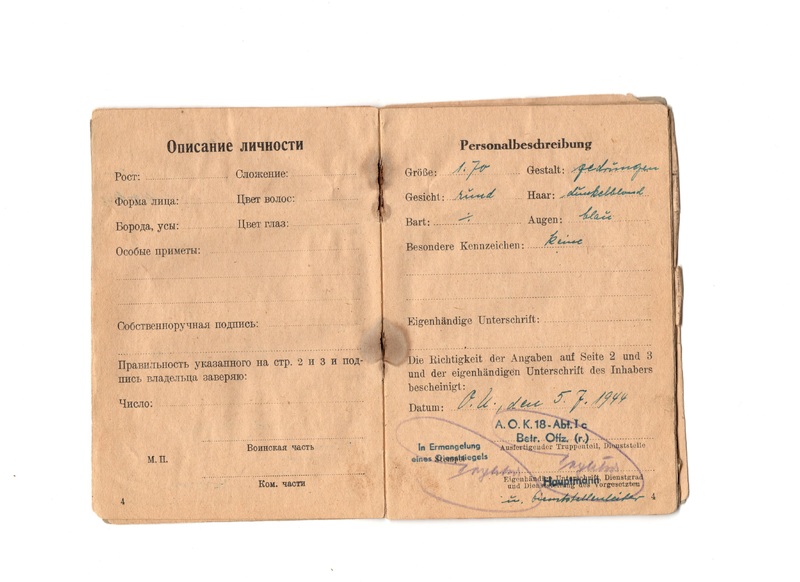 Описание личности
Рост: Сложение:
Форма лица: Цвет волос:
Борода, усы: Цвет глаз:
Особые приметы:
Собственноручная подпись:
Правильность указанного на стр. 2 и 3 и под-
пись владельца заверяю:
Число:
Воинская часть
М. П.
Ком. части
4
Personalbeschreibung
Größe: 1.70 Gestalt: gedrungen
Gesicht: rund Haar: dunkelblond
Bart: ./. Augen: blau
Besondere Kennzeichen: keine
Eigenhändige Unterschrift:
Die Richtigkeit der Angaben auf Seite 2 und 3
und der eigenhändigen Unterschrift des Inhabers
bescheinigt:
Datum: O.U., den 5.7.1944
A.O.K. 18 - Abt. I c
Betr. Offz. (r.)
Ausfertigender Truppenteil, Dienststelle
In Ermangelung
eines Dienstsiegels
Eigenhändige Unterschrift, Dienstgrad
und Dienststellung des Vorgesetzten
Hauptmann
u. Dienststellenleiter
4